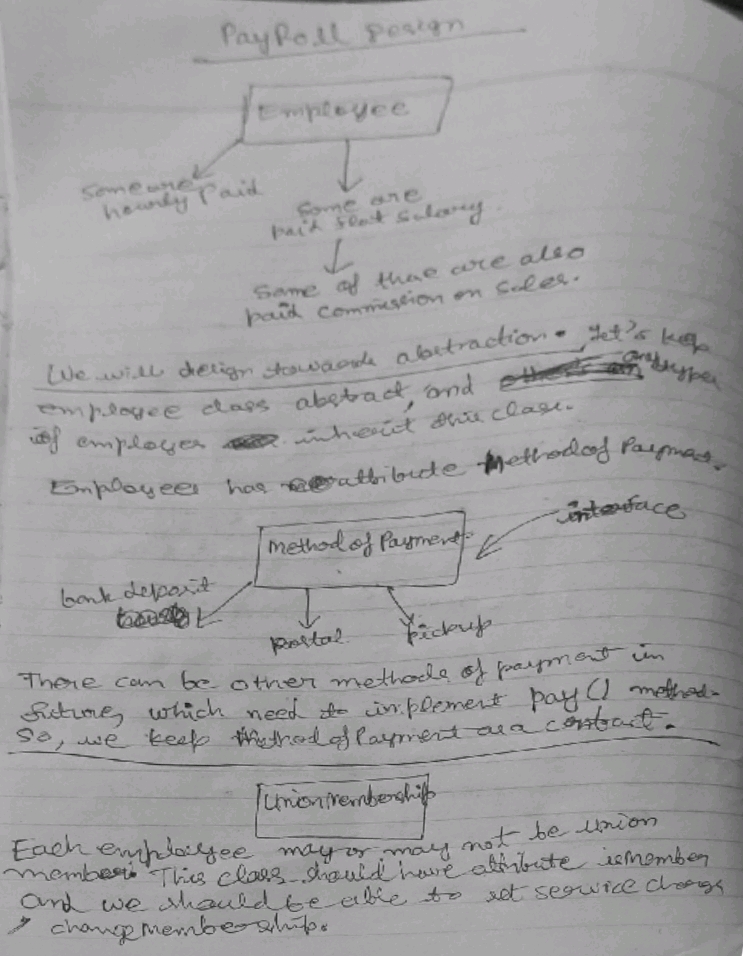 PayRoll Design
Employee
Some are
hourly Paid
Some are
paid flat salary.
Some of thae are also
paid commission on sales.
We will design towards abstraction. Let's keep
employee class abstract, and any types
of employee inherit this class.
Employees has attribute Method of Payment.
interface
Method of Payment
bank deposit
Postal
Pickup
There can be other methods of payment in
future, which need to implement pay() method.
So, we keep Method of Payment as a contract.
Unionmembership
Each employee may or may not be union
member. This class should have attribute ismember
and we should be able to set service charge
, change membership.